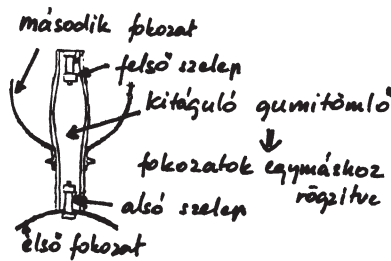 második fokozat
felső szelep
kitáguló gumitömlő
⇓
fokozatok egymáshoz
rögzitve
alsó szelep
első fokozat